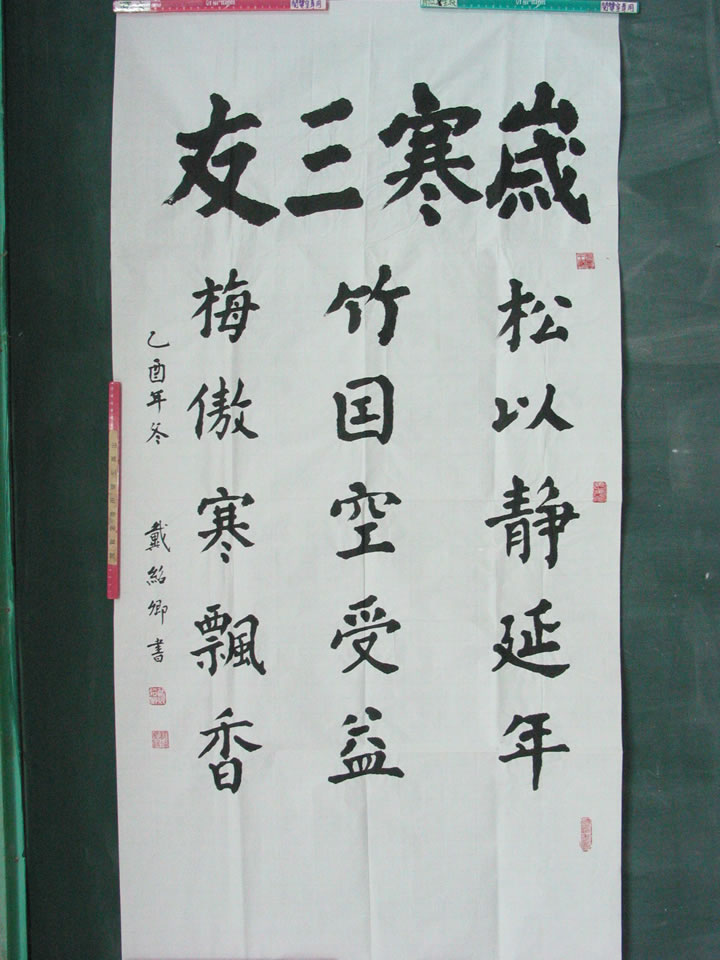 歲寒三友
松以靜延年
竹因空受益
梅傲寒飄香
乙酉年冬 戴紹卿書